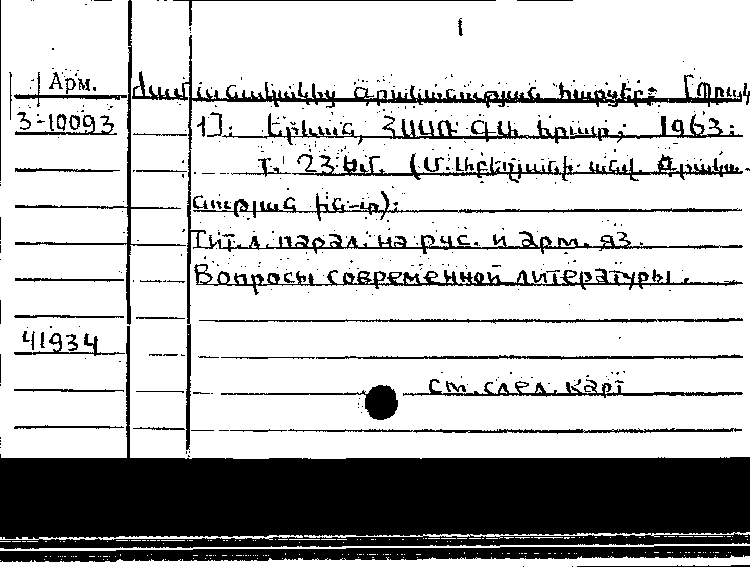 1
Арм.
Ժամանակակից գրականության հարցեր:
3-10093
1]: Երևան, ՀՍՍՌ ԳԱ հրատ.; 1963:
т. 23 սմ. (Մ. Աբեղյանի անվ. Գրակա-
նության ին-տ):
Тит. л. парал. на рус. и арм. яз.
Вопросы современной литературы.
41934
см. след. карт